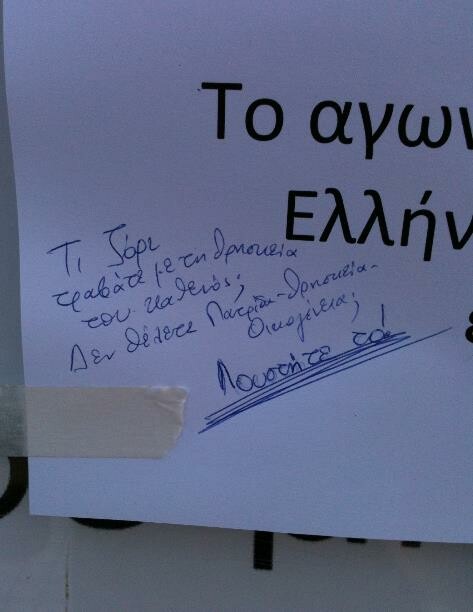 Το αγων
Ελλήν
Τι ζόρι
τραβάτε με τη θρησκεία
του καθενός;
Δεν θέλετε Πατρίδα-θρησκεία-
Οικογένεια;
Λουστήτε το!